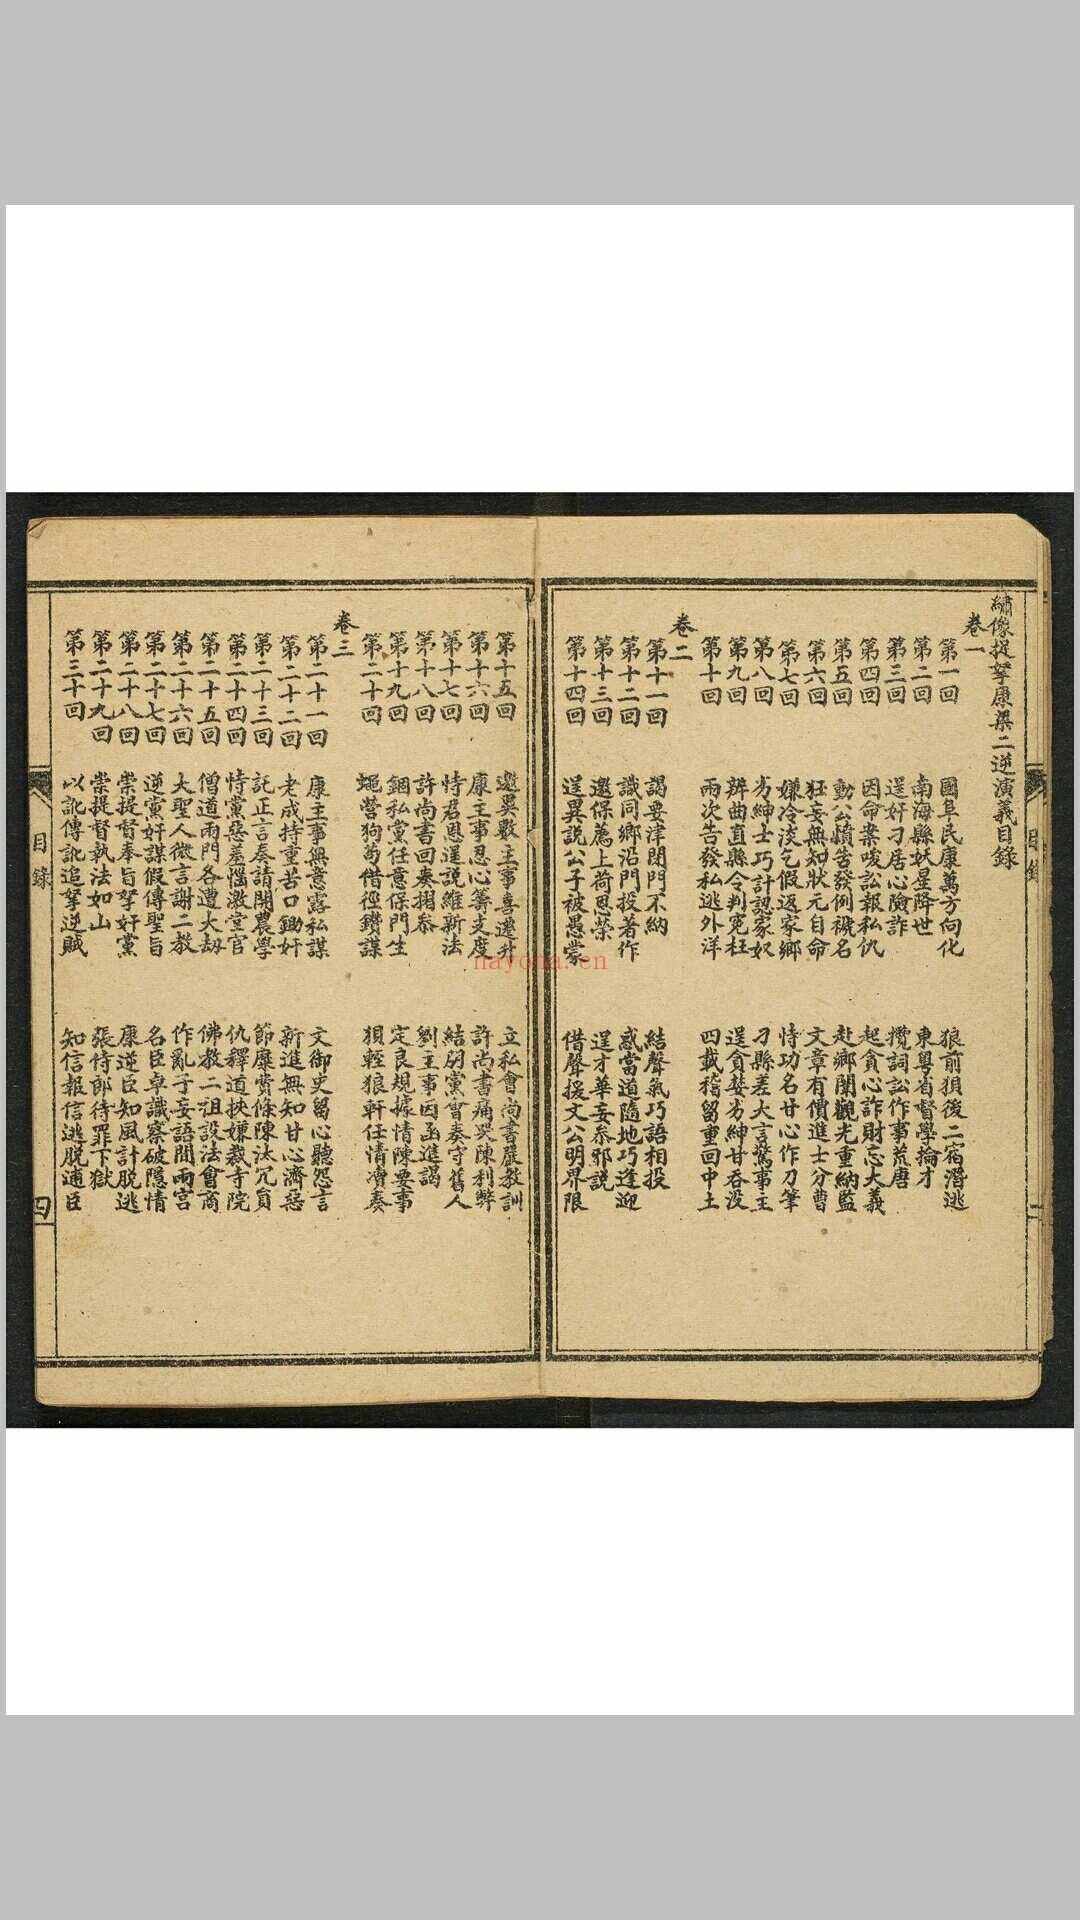 繡像捉拏康梁二逆演義目錄
卷一
第一回 國阜民康萬方向化 狼前狽後二宿潛逃
第二回 南海縣妖星降世 東粵省督學掄才
第三回 逞奸刁居心險詐 攬詞訟作事荒唐
第四回 因命案唆訟報私仇 起貪心詐財忘大義
第五回 動公憤告發例褫名 赴鄉闈觀光重納監
第六回 狂妄無知狀元自命 文章有價進士分曹
第七回 嫌冷淡乞假返家鄉 恃功名甘心作刀筆
第八回 劣紳士巧計認家奴 刁縣差大言驚事主
第九回 辨曲直縣令判冤枉 逞貪婪劣紳甘吞没
第十回 兩次告發私逃外洋 四載稽留重回中土
卷二
第十一回 謁要津閉門不納 結聲氣巧語相投
第十二回 識同鄉沿門投著作 惑當道隨地巧逢迎
第十三回 邀保薦上荷恩榮 逞才華妄恭邪説
第十四回 逞異説公子被愚蒙 借聲援文公明界限
第十五回 邀異數主事喜遷升 立私會尚書嚴教訓
第十六回 康主事忍心籌支度 許尚書痛哭陳利弊
第十七回 恃君恩逞説維新法 結朋黨會奏守舊人
第十八回 許尚書回奏摺叅 劉主事因函進謁
第十九回 錮私黨任意保門生 定良規據情陳要事
第二十回 蠅營狗苟借徑鑽謀 狽輕狼軒任情瀆奏
卷三
第二十一回 康主事無意露私謀 文御史留心聽怨言
第二十二回 老成持重苦口鋤奸 新進無知甘心濟惡
第二十三回 託正言奏請開農學 節糜費條陳汰冗員
第二十四回 恃黨惡羞惱激堂官 仇釋道挾嫌裁寺院
第二十五回 僧道兩門各遭大劫 佛教二祖設法會商
第二十六回 大聖人微言謝二教 作亂子妄語間兩宮
第二十七回 逆黨奸謀假傳聖旨 名臣卓識察破隱情
第二十八回 崇提督奉旨拏奸黨 康逆臣知風計脱逃
第二十九回 崇提督執法如山 張侍郎待罪下獄
第三十回 以訛傳訛追拏逆賊 知信報信逃脱逋臣
目錄
四